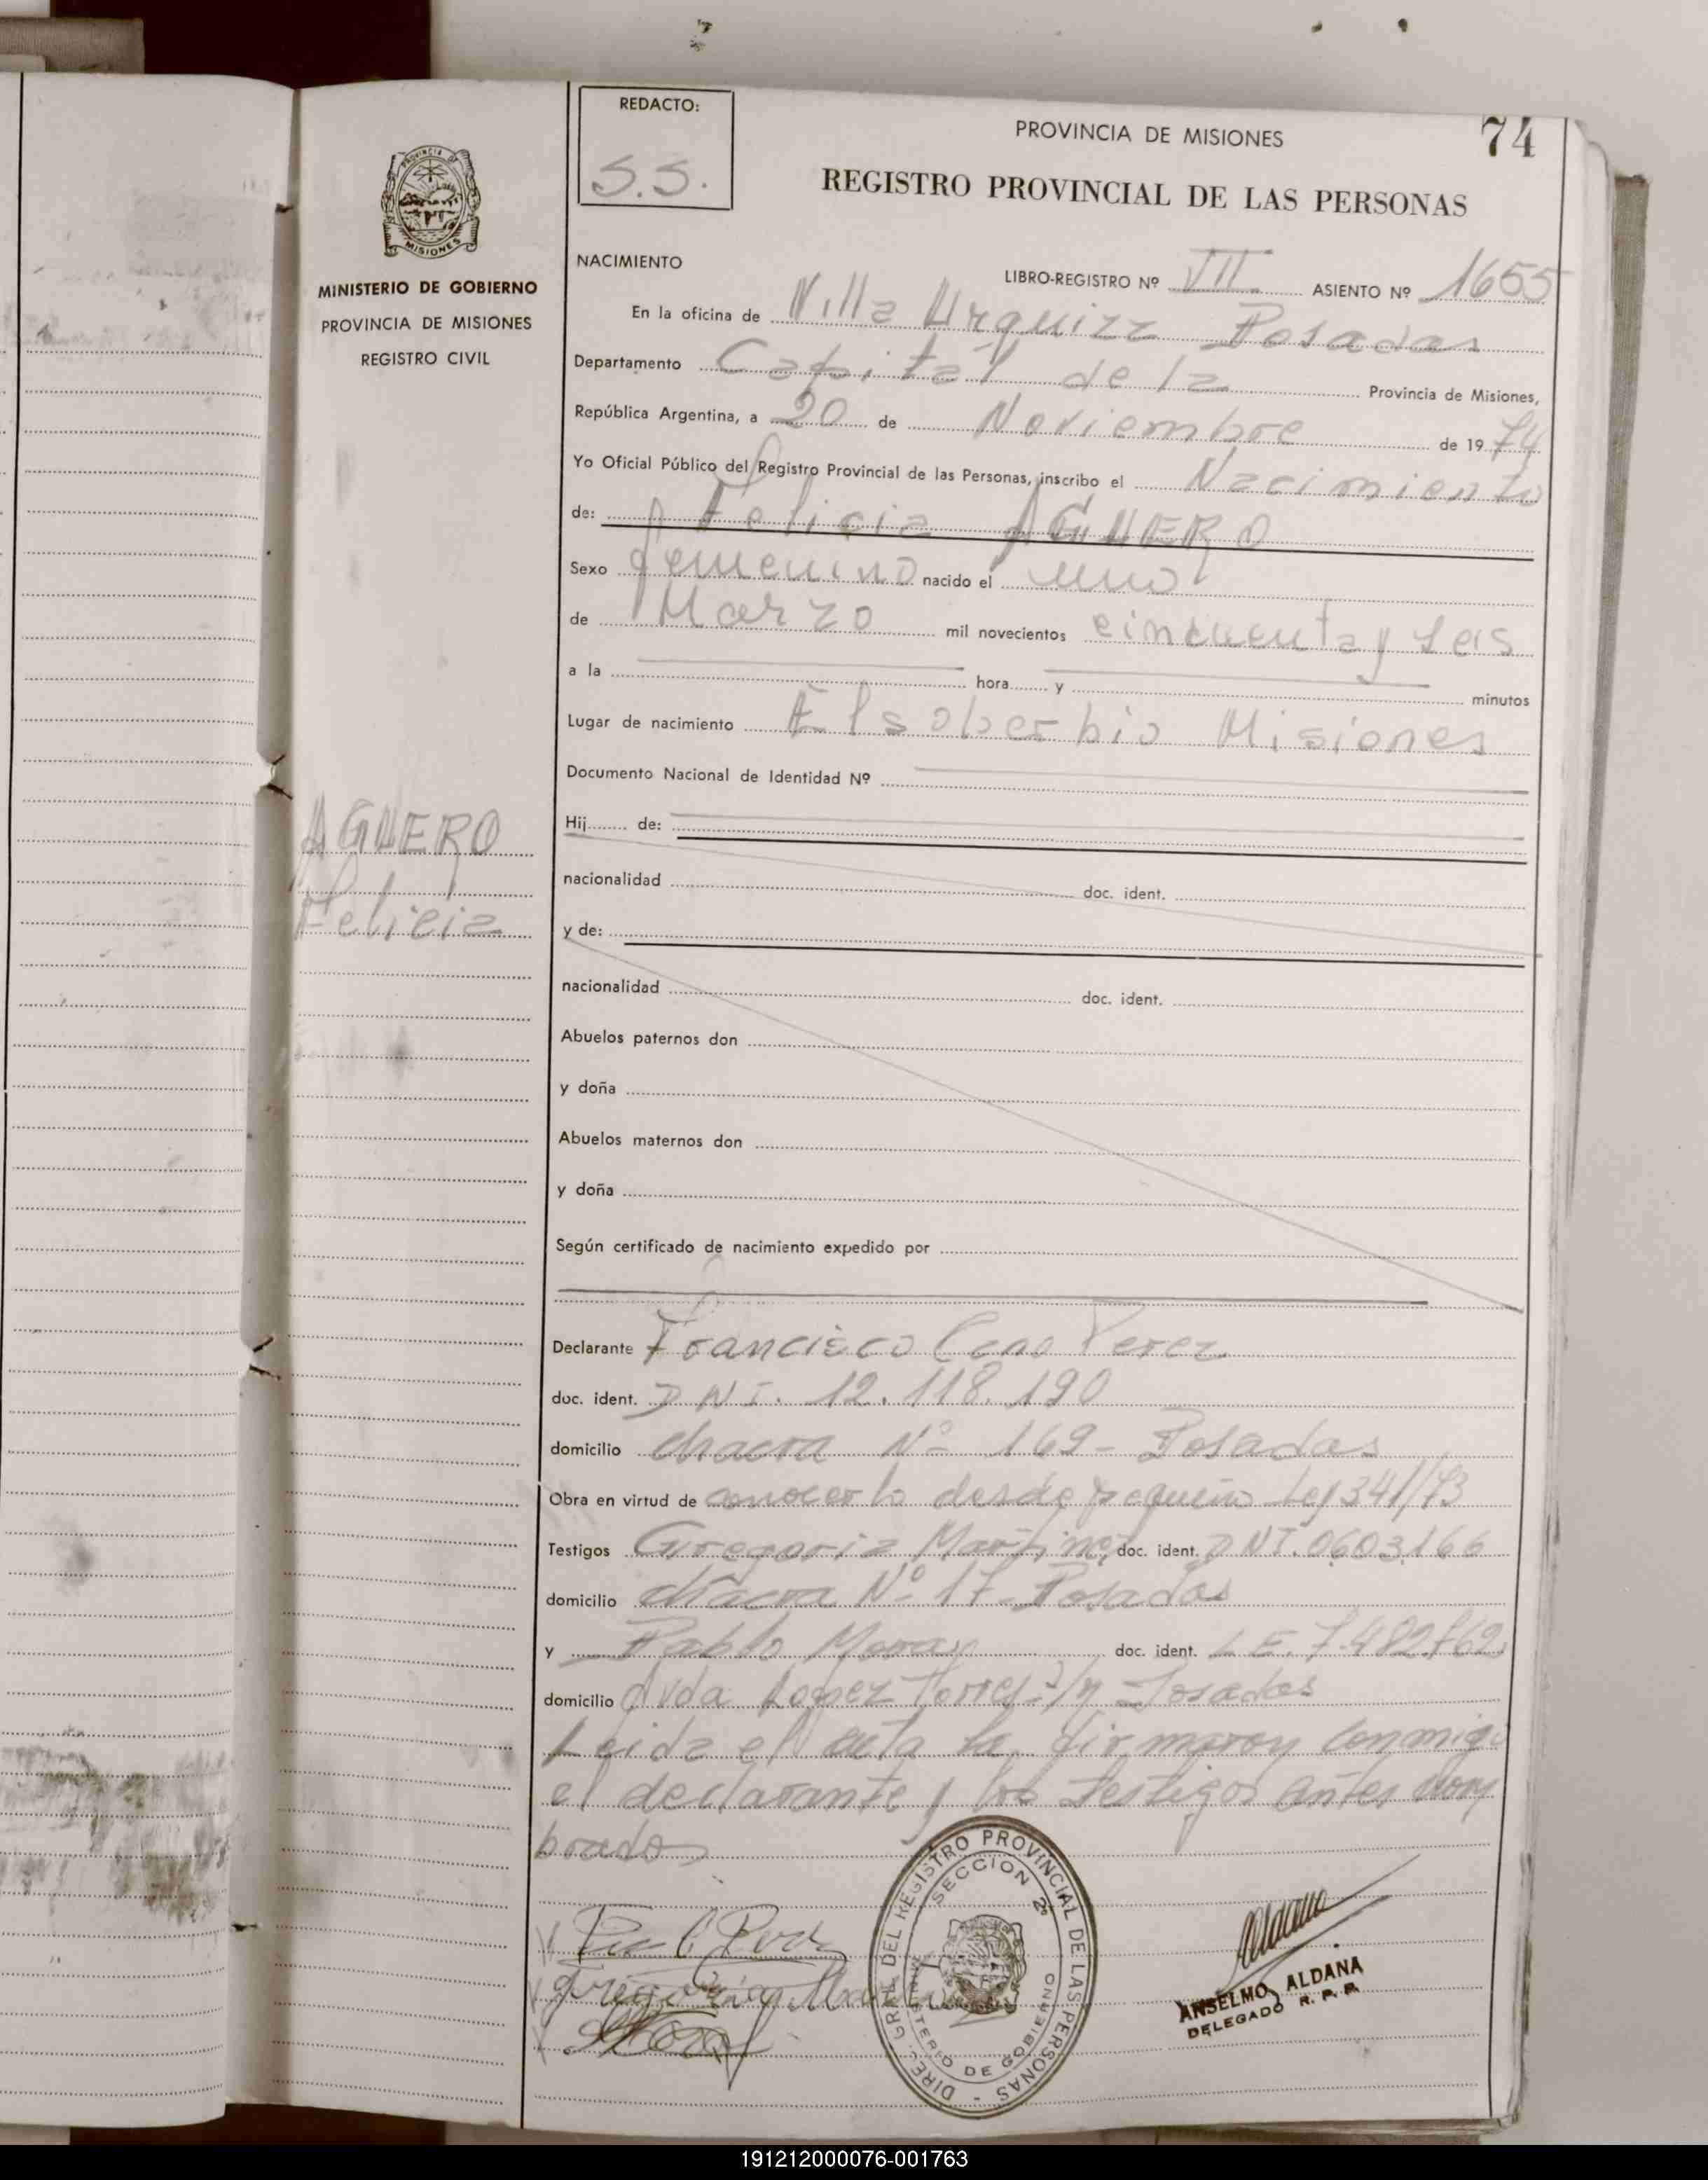 REDACTO:
S.S.
PROVINCIA DE MISIONES
74
REGISTRO PROVINCIAL DE LAS PERSONAS
PROVINCIA DE
MISIONES
MINISTERIO DE GOBIERNO
PROVINCIA DE MISIONES
REGISTRO CIVIL
NACIMIENTO
LIBRO-REGISTRO Nº VII ASIENTO Nº 1655
En la oficina de Villa Urquiza Posadas
Departamento Capital de la Provincia de Misiones,
República Argentina, a 20 de Noviembre de 1974
Yo Oficial Público del Registro Provincial de las Personas, inscribo el Nacimiento
de: Felicia AGUERO
Sexo femenino nacido el uno
de Marzo mil novecientos cincuenta y seis
a la hora y minutos
Lugar de nacimiento El soberbio Misiones
Documento Nacional de Identidad Nº
Hij de:
AGUERO
Felicia
nacionalidad doc. ident.
y de:
nacionalidad doc. ident.
Abuelos paternos don
y doña
Abuelos maternos don
y doña
Según certificado de nacimiento expedido por
Declarante Francisco Perez
doc. ident. DNI. 12.118.190
domicilio chacra Nº 169 - Posadas
Obra en virtud de conocerlo desde pequeño Ley 341/73
Testigos Gregoria Martinez doc. ident. DNI. 0603166
domicilio chacra Nº 17 Posadas
y Pablo doc. ident. L.E. 7.482.762
domicilio Avda Lopez Torres s/n - Posadas
Leida el acta la firmaron conmigo
el declarante y los testigos antes nom
brados
DIREC. GRAL. DEL REGISTRO PROVINCIAL DE LAS PERSONAS -
SECCION 2ª
MINISTERIO DE GOBIERNO
Gregoria
ANSELMO ALDANA
DELEGADO R. P. P.
191212000076-001763